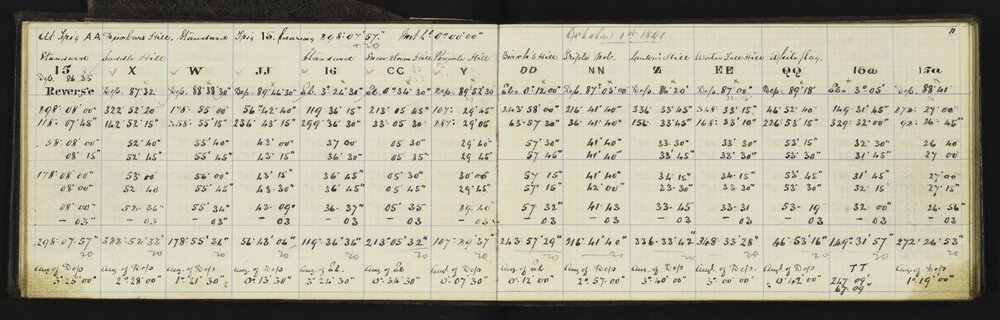 At Trig AA Standard Trig 15 bearing 298·07'57" October 1st 1891 11
+20
Standard Saddle Hill Standard Pinnacle Hill Birch's Hill Water Race Hill White flag
15 X W JJ 16 CC Y DD NN Z EE QQ 16a 15a
Dep. 86 35
Reverse Dep. 87°32 Dep. 88°38'30" Dep. 89°46'30" El. 3°24'30" El. 0°34'30" Dep. 89°52'30 Elen 0°12'00 Dep. 87°03'00 Dep. 86°20' Dep. 87°00' Dep. 89°18' Elen 3°05' Dep. 88·41
298·08'00" 322°52'20" 178·55'00" 56°42'40" 119°36'15" 213°05'45" 107·29'45" 243°58'00" 216°41'40" 336°33'45" 348·33'15" 46°52'40" 149°31'45" 272·27'00"
118·07'45" 142°52'15" 358·55'15" 236°43'15" 299°36'30" 33·05'30 287·29'05 63·57'30" 36°41'40" 156·33'45" 168·33'10" 226°53'15" 329·32'00" 92·26·45"
58·08'00 52'40" 55'40" 43'00" 37'00 05'30" 29'40" 57'30" 41'40" 33·30" 33'30" 53'15" 32'30" 26 40
08'15" 52'45" 55'45" 43'15" 36'30" 05'35" 29 45" 57'45" 41'40" 33'45" 33'30" 53'30" 31'45" 27'00
178·08'00" 53'00 56'00" 43'15" 36'45" 05'30" 30'00" 57'15" 41'40" 34'15" 34'15" 53'45" 31'45" 27'00"
08'00" 52 40 55'45" 43·30" 36'45 05'45" 29'45" 57'15" 42'00" 33·30" 33'30" 53'30" 32'15" 27'15"
08'00" 52·36" 55'34" 43·09" 36·37" 05'35 29·40" 57'32" 41·43 33·45 33·31 53·19 32'00" 26·56"
– 03 – 03" – 03" – 03" – 03 – 03 – 03" – 03" – 03 – 03" – 03 – 03" – 03" – 03"
298·07'57" 322·52'33" 178·55'31" 56·43'06" 119·36'34" 213·05'32" 107·29'37" 243·57'29" 216·41'40" 336·33'42" 348·33'28" 46·53'16" 149·31'57" 272·26'53"
20 20 20 20 20 20 20 20 20 20 20 20 20 20
Ang. of Dep Ang. of Dep Ang. of Dep Ang. of Dep Ang. of El. Ang. of El. Ang. of Dep. Ang. of El Ang. of Dep Ang. of Dep Ang. of Dep Ang. of Dep TT Ang. of Dep
3°25'00" 2°28'00" 1°21'30" 0°13'30" 3°24'30" 0°34'30" 0°07'30" 0°12'00" 2°57·00" 3°40'00" 3°00'00" 0°42'00" 247·09' 1°19'00"
67·09"